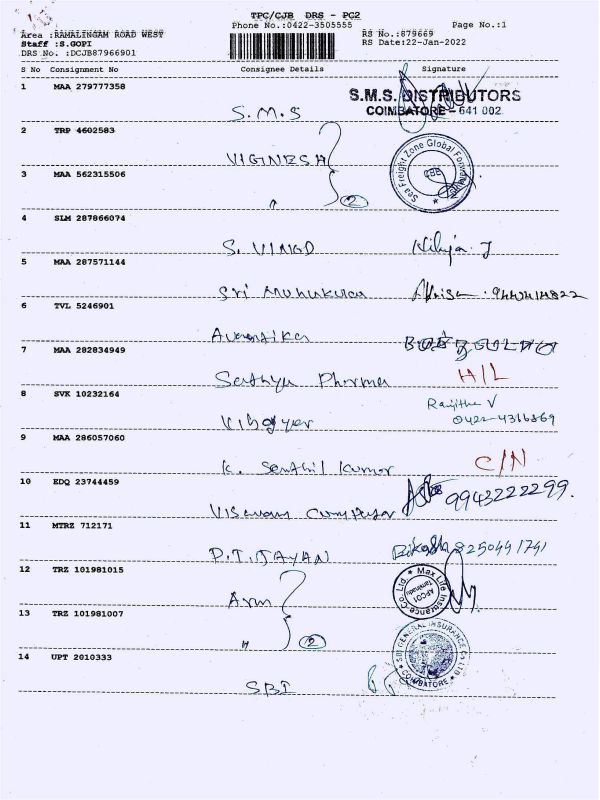 TPC/CJB DRS - PC2
Phone No.:0422-3505555
Page No.:1
Area :RAMALINGAM ROAD WEST
RS No.:879669
Staff :S.GOPI
RS Date:22-Jan-2022
DRS No. :DCJB87966901
S No Consignment No Consignee Details Signature
1 MAA 279777358
S.M.S. DISTRIBUTORS
COIMBATORE - 641 002
S.M.S
2 TRP 4602583
VIGNESH
Sea Freight Zone Global Forwarders
CBE
3 MAA 562315506
" 2
4 SLM 287866074
S. VINOD
5 MAA 287571144
Sri Muhukuran
6 TVL 5246901
Avantika
7 MAA 282834949
Sathya Pharma H/L
8 SVK 10232164
Ranjitha V
0422-4316869
9 MAA 286057060
K. Senthil Kumar C/N
10 EDQ 23744459
9943222299.
Viswam Computer
11 MTRZ 712171
P.T. VIJAYAN 8250491791
12 TRZ 101981015
Max Life Insurance Co. Ltd.
Tamilnadu
13 TRZ 101981007
" 2
SBI GENERAL INSURANCE Co LTD
COIMBATORE
14 UPT 2010333
SBI